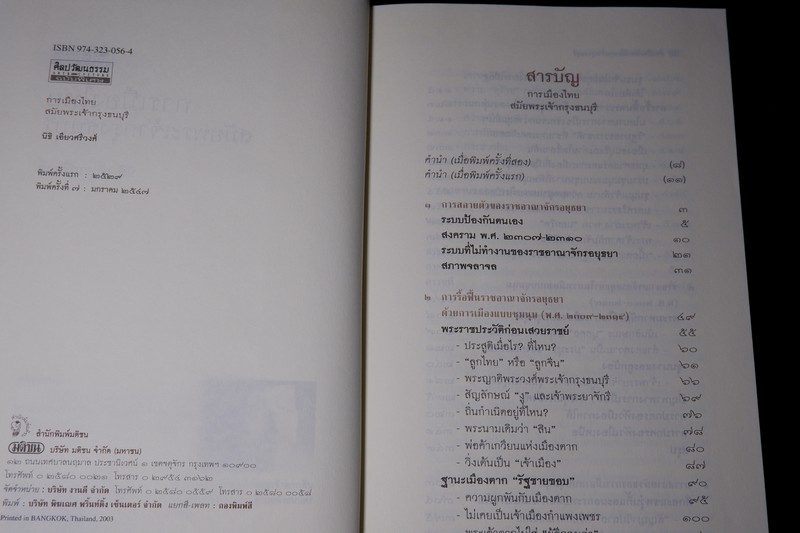 ISBN 974-323-056-4
ศิลปวัฒนธรรม
การเมืองไทย
สมัยพระเจ้ากรุงธนบุรี
นิธิ เอียวศรีวงศ์
พิมพ์ครั้งแรก : ๒๕๒๙
พิมพ์ครั้งที่ ๗ : มกราคม ๒๕๔๗
สำนักพิมพ์มติชน
มติชน บริษัท มติชน จำกัด (มหาชน)
๑๒ ถนนเทศบาลนฤมาล ประชานิเวศน์ ๑ เขตจตุจักร กรุงเทพฯ ๑๐๙๐๐
โทรศัพท์ ๐ ๒๕๘๐ ๐๐๒๑ โทรสาร ๐ ๒๙๕๔
จัดจำหน่าย : บริษัท งานดี จำกัด โทรศัพท์ ๐ ๒๕๘๐ โทรสาร ๐ ๒๕๘๐ ๐๐๕๘
พิมพ์ : บริษัท พิฆเณศ พริ้นท์ติ้ง เซ็นเตอร์ จำกัด แยกสี-เพลท : กองพิมพ์สี
Printed in BANGKOK, Thailand, 2003
สารบัญ
การเมืองไทย
สมัยพระเจ้ากรุงธนบุรี
คำนำ (เมื่อพิมพ์ครั้งที่สอง) (๘)
คำนำ (เมื่อพิมพ์ครั้งแรก) (๑๑)
๑ การสลายตัวของราชอาณาจักรอยุธยา ๓
ระบบป้องกันตนเอง ๕
สงคราม พ.ศ. ๒๓๐๗-๒๓๑๐ ๑๐
ระบบที่ไม่ทำงานของราชอาณาจักรอยุธยา ๒๑
สภาพจลาจล ๓๑
๒ การรื้อฟื้นราชอาณาจักรอยุธยา
ด้วยการเมืองแบบชุมนุม (พ.ศ. ๒๓๑๐-๒๓๑๔) ๔๙
พระราชประวัติก่อนเสวยราชย์ ๕๕
- ประสูติเมื่อไร? ที่ไหน? ๖๐
- “ลูกไทย” หรือ “ลูกจีน” ๖๑
- พระญาติพระวงศ์พระเจ้ากรุงธนบุรี ๖๖
- สัญลักษณ์ “งู” และเจ้าพระยาจักรี ๖๙
- ถิ่นกำเนิดอยู่ที่ไหน? ๗๖
- พระนามเดิมว่า “สิน” ๗๘
- พ่อค้าเกวียนแห่งเมืองตาก ๘๐
- วิ่งเต้นเป็น “เจ้าเมือง” ๘๗
ฐานะเมืองตาก “รัฐชายขอบ” ๙๐
- ความผูกพันกับเมืองตาก ๙๕
- ไม่เคยเป็นเจ้าเมืองกำแพงเพชร ๑๐๐